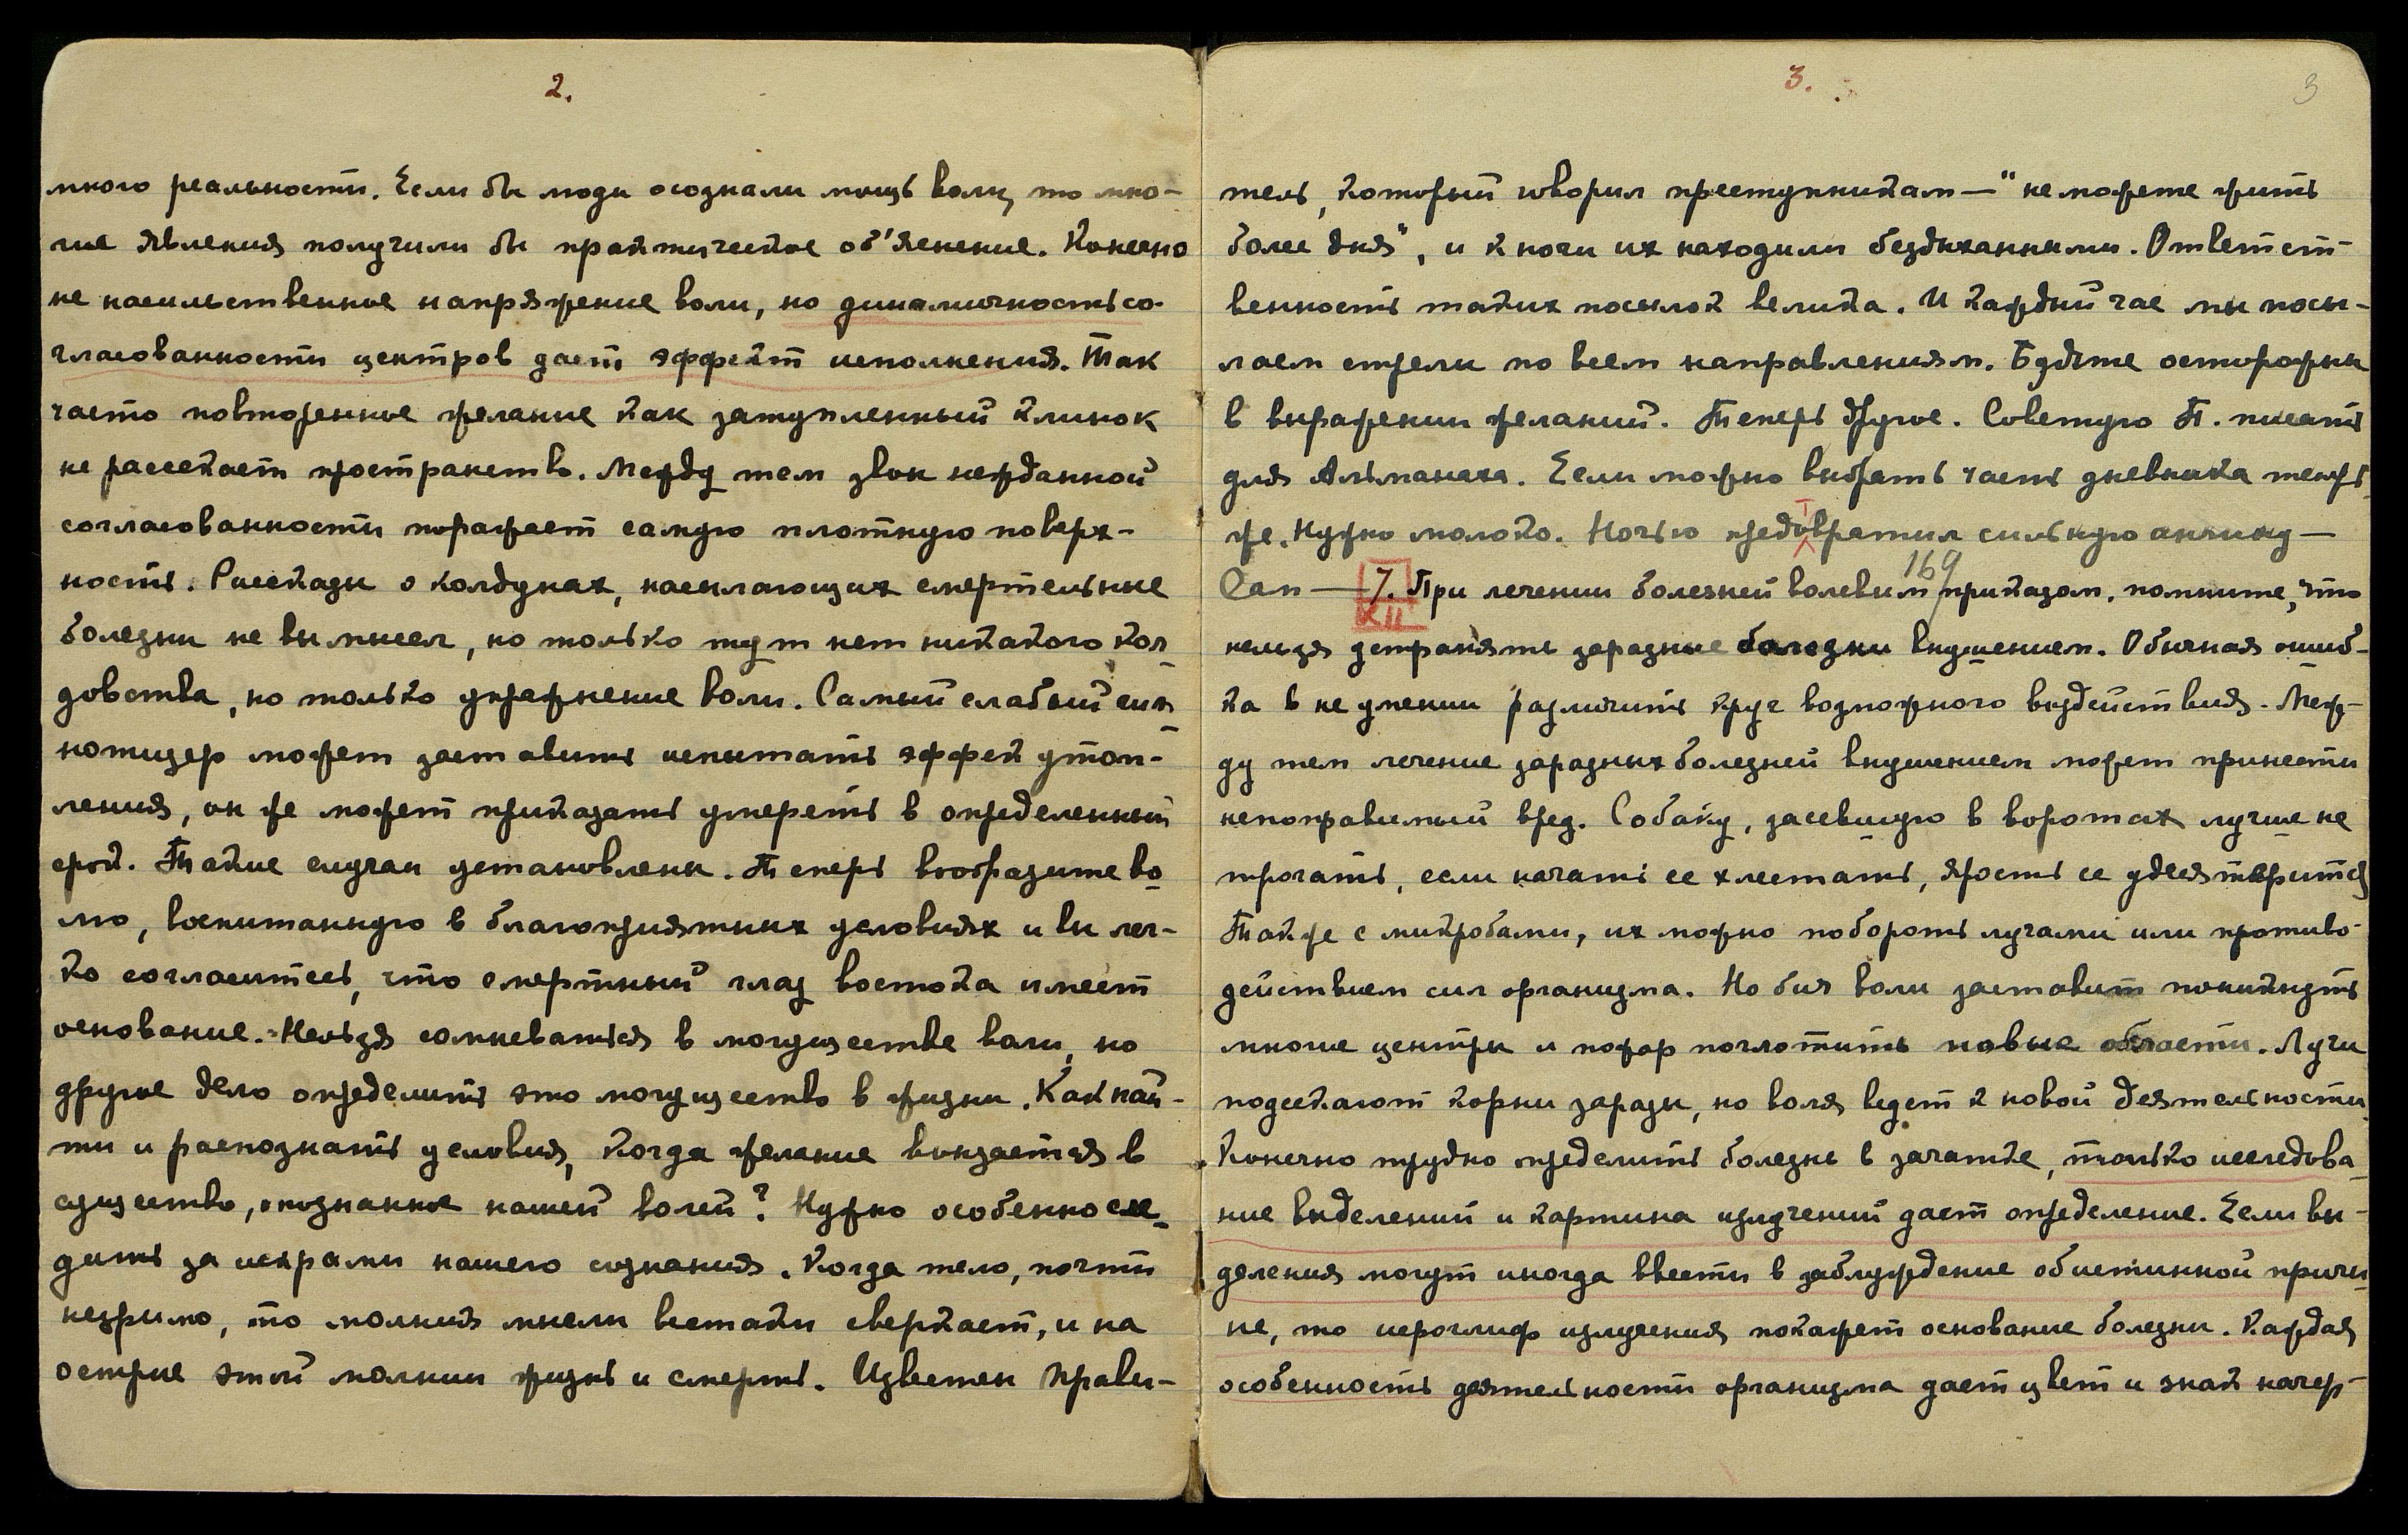 2.
много реальности. Если бы люди осознали мощь воли, то мно-
гие явления получили бы практическое об'яснение. Конечно
не насильственное напряжение воли, но динамичность со-
гласованности центров дает эффект исполнения. Так
часто повторенное желание как затупленный клинок
не рассекает пространство. Между тем звон нежданной
согласованности поражает самую плотную поверх-
ность. Рассказы о колдунах, насылающих смертельные
болезни не вымысел, но только тут нет никакого кол-
довства, но только упражнение воли. Самый слабый гип-
нотизер может заставить испытать эффек утоп-
ления, он же может приказать умереть в определенный
срок. Такие случаи установлены. Теперь вообразите во-
лю, воспитанную в благоприятных условиях и вы лег-
ко согласитесь, что смертный глаз востока имеет
основание. Нельзя сомневаться в могуществе воли, но
другое дело определить это могущество в жизни. Как най-
ти и распознать условия, когда желание вонзается в
существо, опознанное нашей волей? Нужно особенно сле-
дить за искрами нашего сознания. Когда тело, почти
незримо, то молния мысли всетаки сверкает, и на
острие этой молнии жизнь и смерть. Известен прави-
3.
3
тель, который говорил преступникам — "не можете жить
более дня", и к ночи их находили бездыханными. Ответст-
венность таких посылок велика. И каждый час мы посы-
лаем стрелы по всем направлениям. Будьте осторожны
в выражении желаний. Теперь другое. Советую П. писать
для Альманаха. Если можно выбрать часть дневника теперь
же. Нужно молоко. Ночью предотвратил сильную ангину —
Сам — 7. При лечении болезней волевым приказом, помните, что
XII
169
нельзя устранять заразные болезни внушением. Обычная ошиб-
ка в не умении различить круг возможного воздействия. Меж-
ду тем лечение заразных болезней внушением может принести
непоправимый вред. Собаку, засевшую в воротах лучше не
трогать, если начать ее хлестать, ярость ее удесятерится
Также с микробами, их можно побороть лучами или противо-
действием сил организма. Но бич воли заставит покинуть
многие центры и пожар поглотить новые области. Лучи
подсекают корни заразы, но воля ведет к новой деятельности.
Конечно трудно определить болезнь в зачатке, только исследова-
ние выделений и картина излучений дает определение. Если вы-
деления могут иногда ввести в заблуждение об истинной причи-
не, то иероглиф излучения покажет основание болезни. Каждая
особенность деятельности организма дает цвет и знак начер-